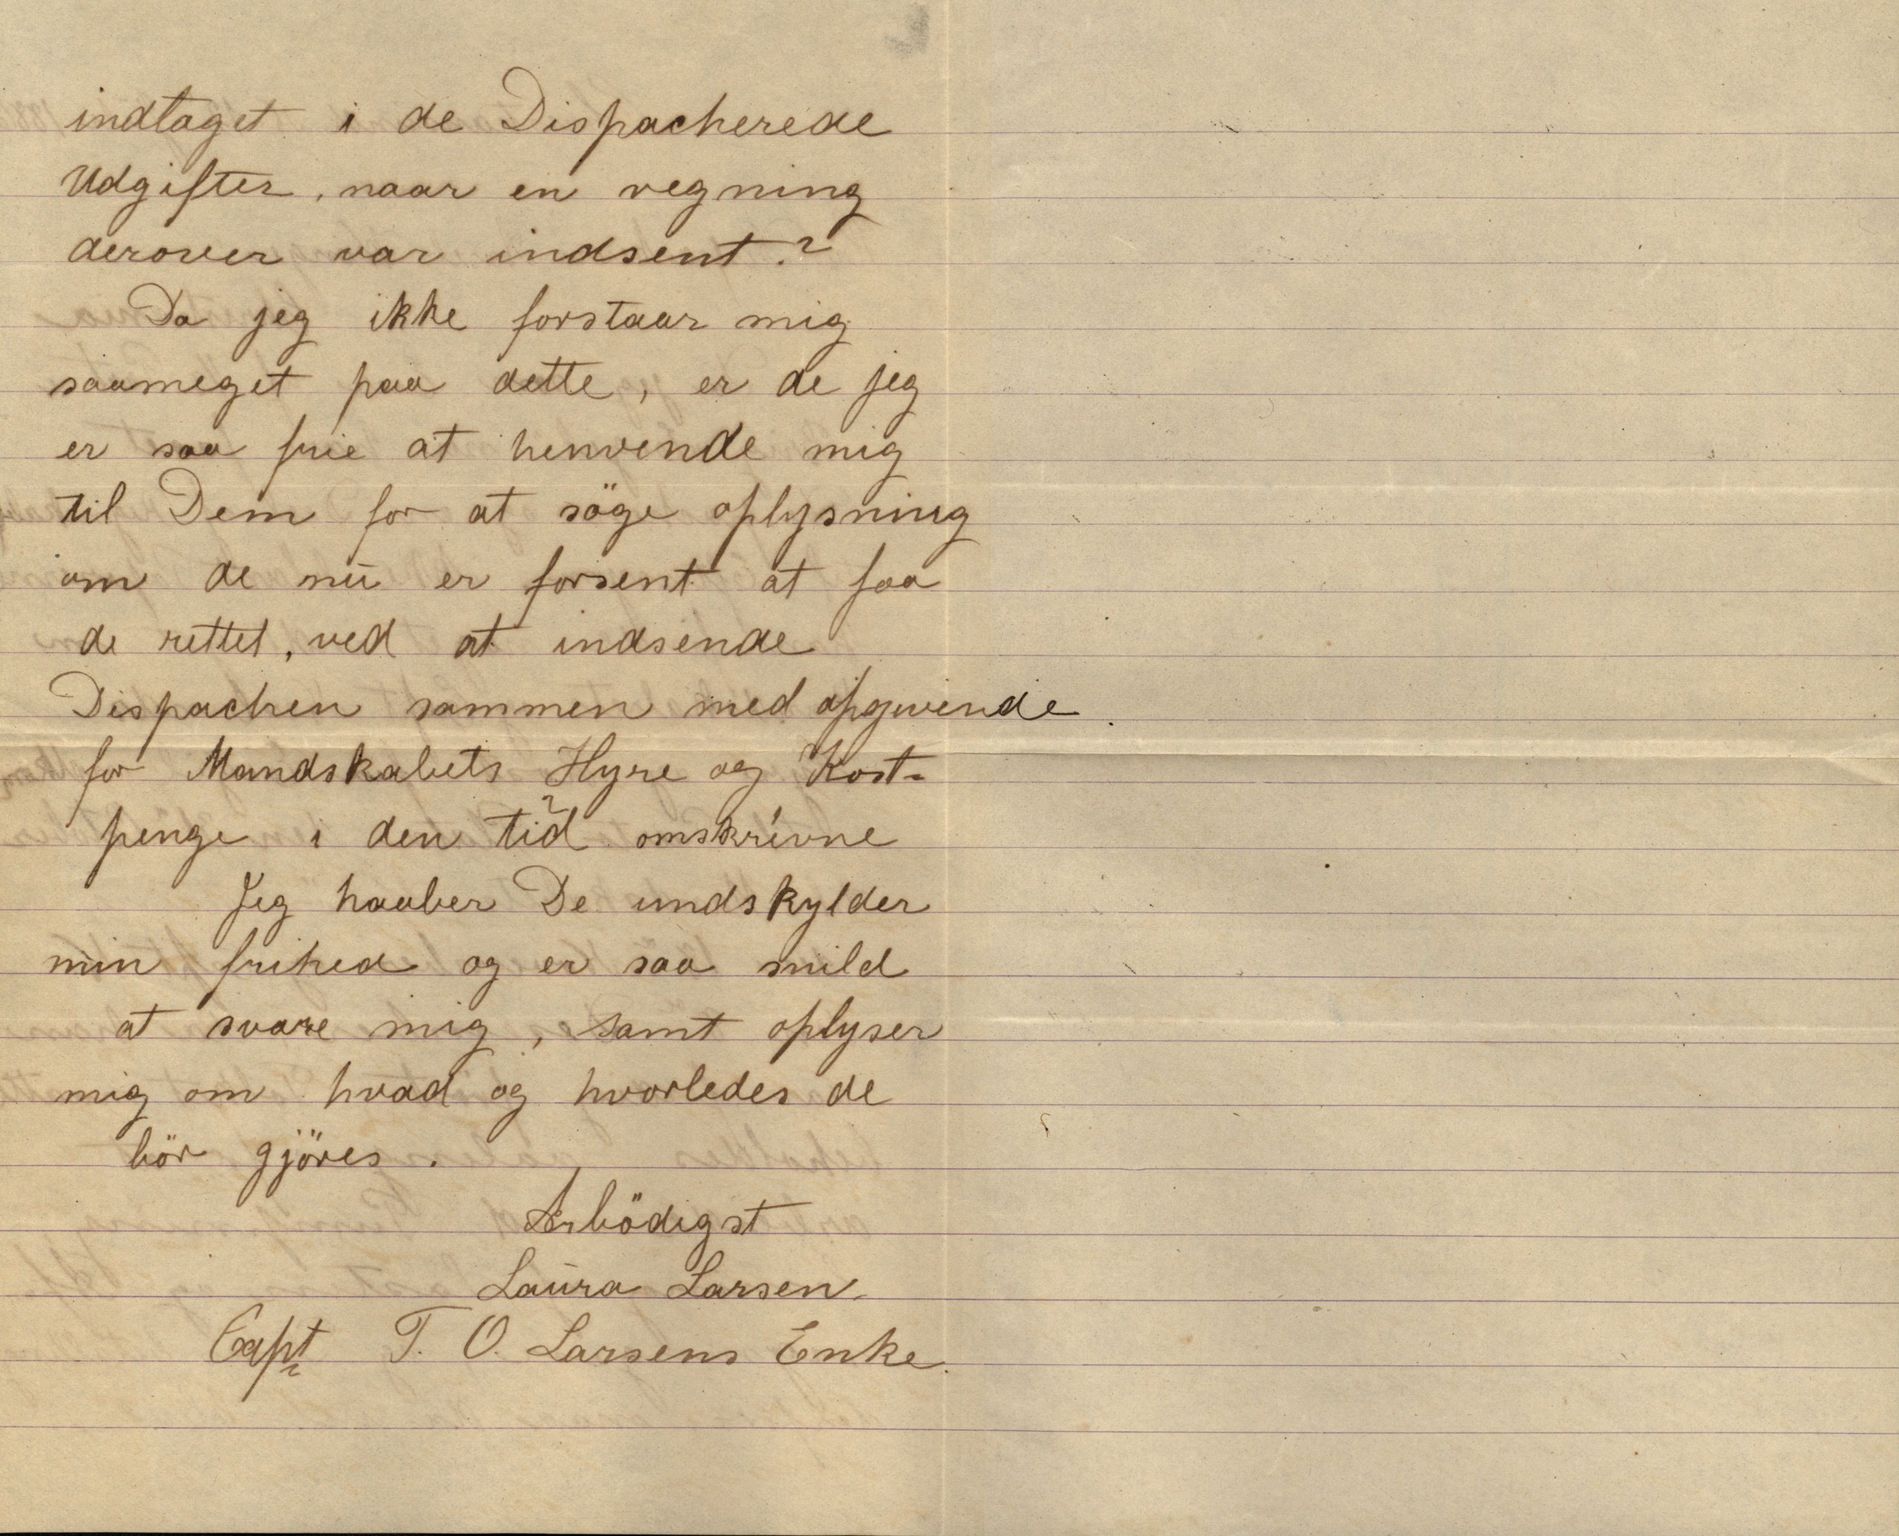 indtaget i de Dispacherede
Udgifter, naar en regning
derover var indsent?
Da jeg ikke forstaar mig
saameget paa dette, er de jeg
er saa frie at henvende mig
til Dem for at söge oplysning
om de nu er forsent at faa
de rettet, ved at indsende
Dispachen sammen med opgivende
for Mandskabets Hyre og Kost-
penge i den tid omskrivne
Jeg haaber De undskylder
min frihed og er saa snild
at svare mig, samt oplyser
mig om hvad og hvorledes de
bör gjöres.
Ærbödigst
Laura Larsen
Capt T. O. Larsens Enke.